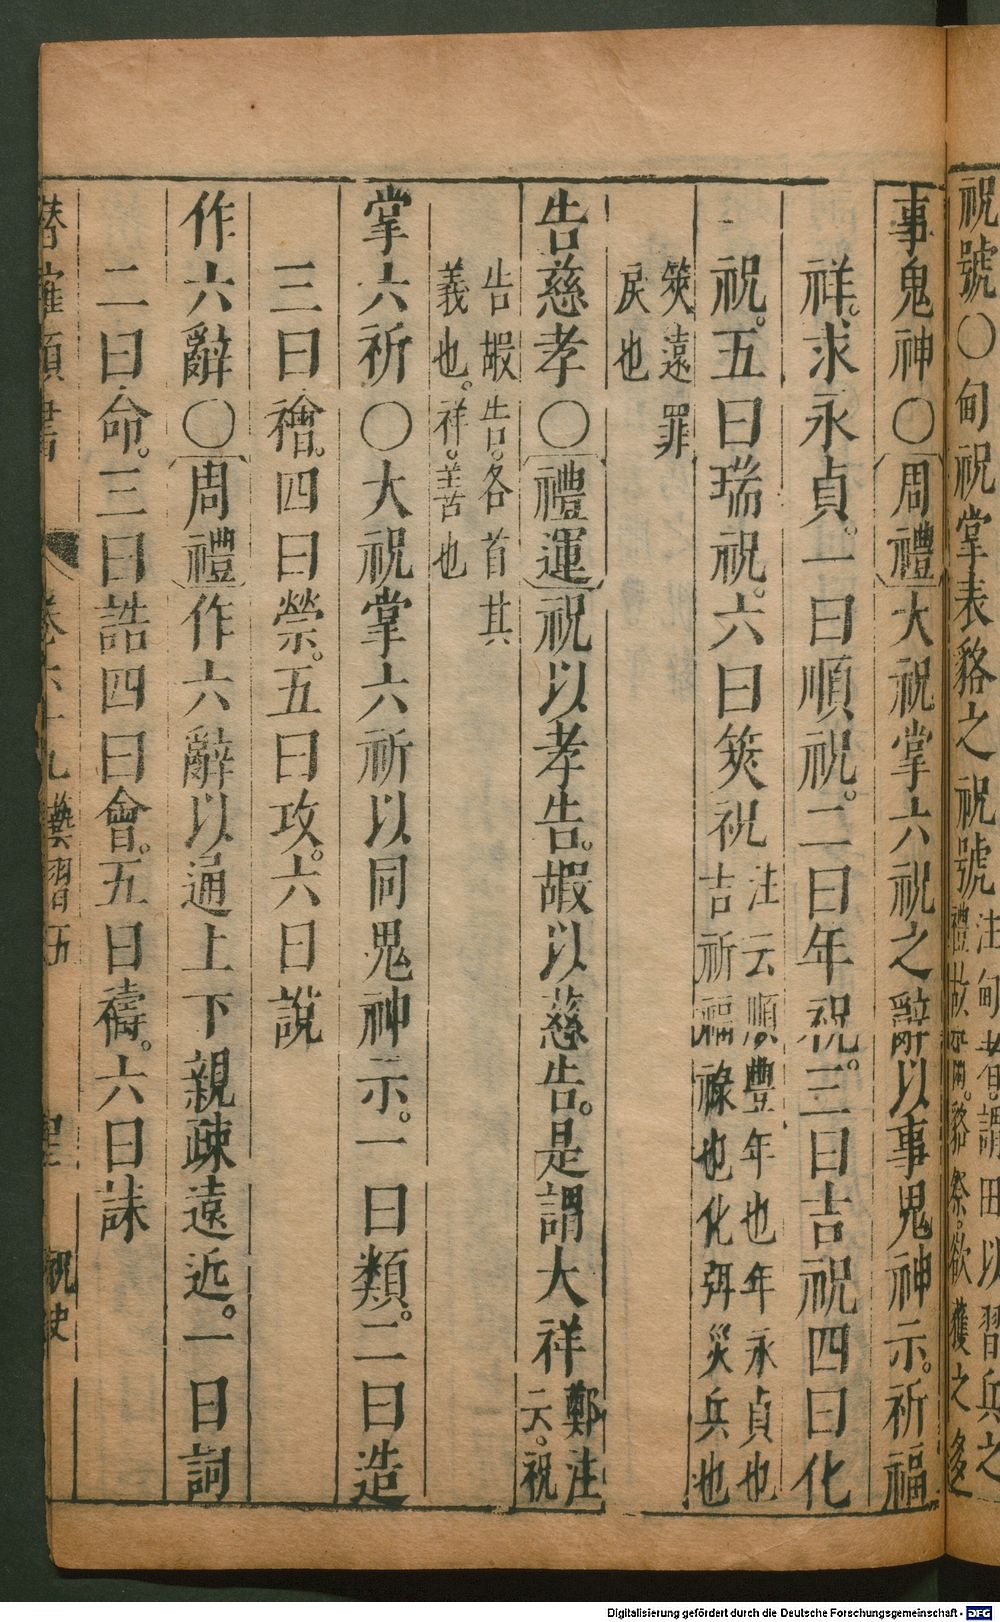 祝號○甸祝掌表貉之祝號注甸者謂田以習兵之
禮故亦禡貉祭欲獲之多
事鬼神○周禮大祝掌六祝之辭以事鬼神示。祈福
祥。求永貞。一曰順祝。二曰年祝。三曰吉祝四曰化
祝。五曰瑞祝。六曰筴祝注云順豐年也年永貞也
吉祈福祿也化弭災兵也
筴遠罪
戾也
告慈孝○禮運祝以孝告。嘏以慈告。是謂大祥鄭注
云。祝
告嘏告。各首其
義也。祥。善也
掌六祈○大祝掌六祈以同鬼神示。一曰類。二曰造
三曰禬。四曰禜。五曰攻。六曰說
作六辭○周禮作六辭以通上下親疎遠近。一曰詞
二曰命。三曰誥四曰會。五曰禱。六曰誄
潛確類書 卷六十九 藝習五 聖 祝史
Digitalisierung gefördert durch die Deutsche Forschungsgemeinschaft - DFG